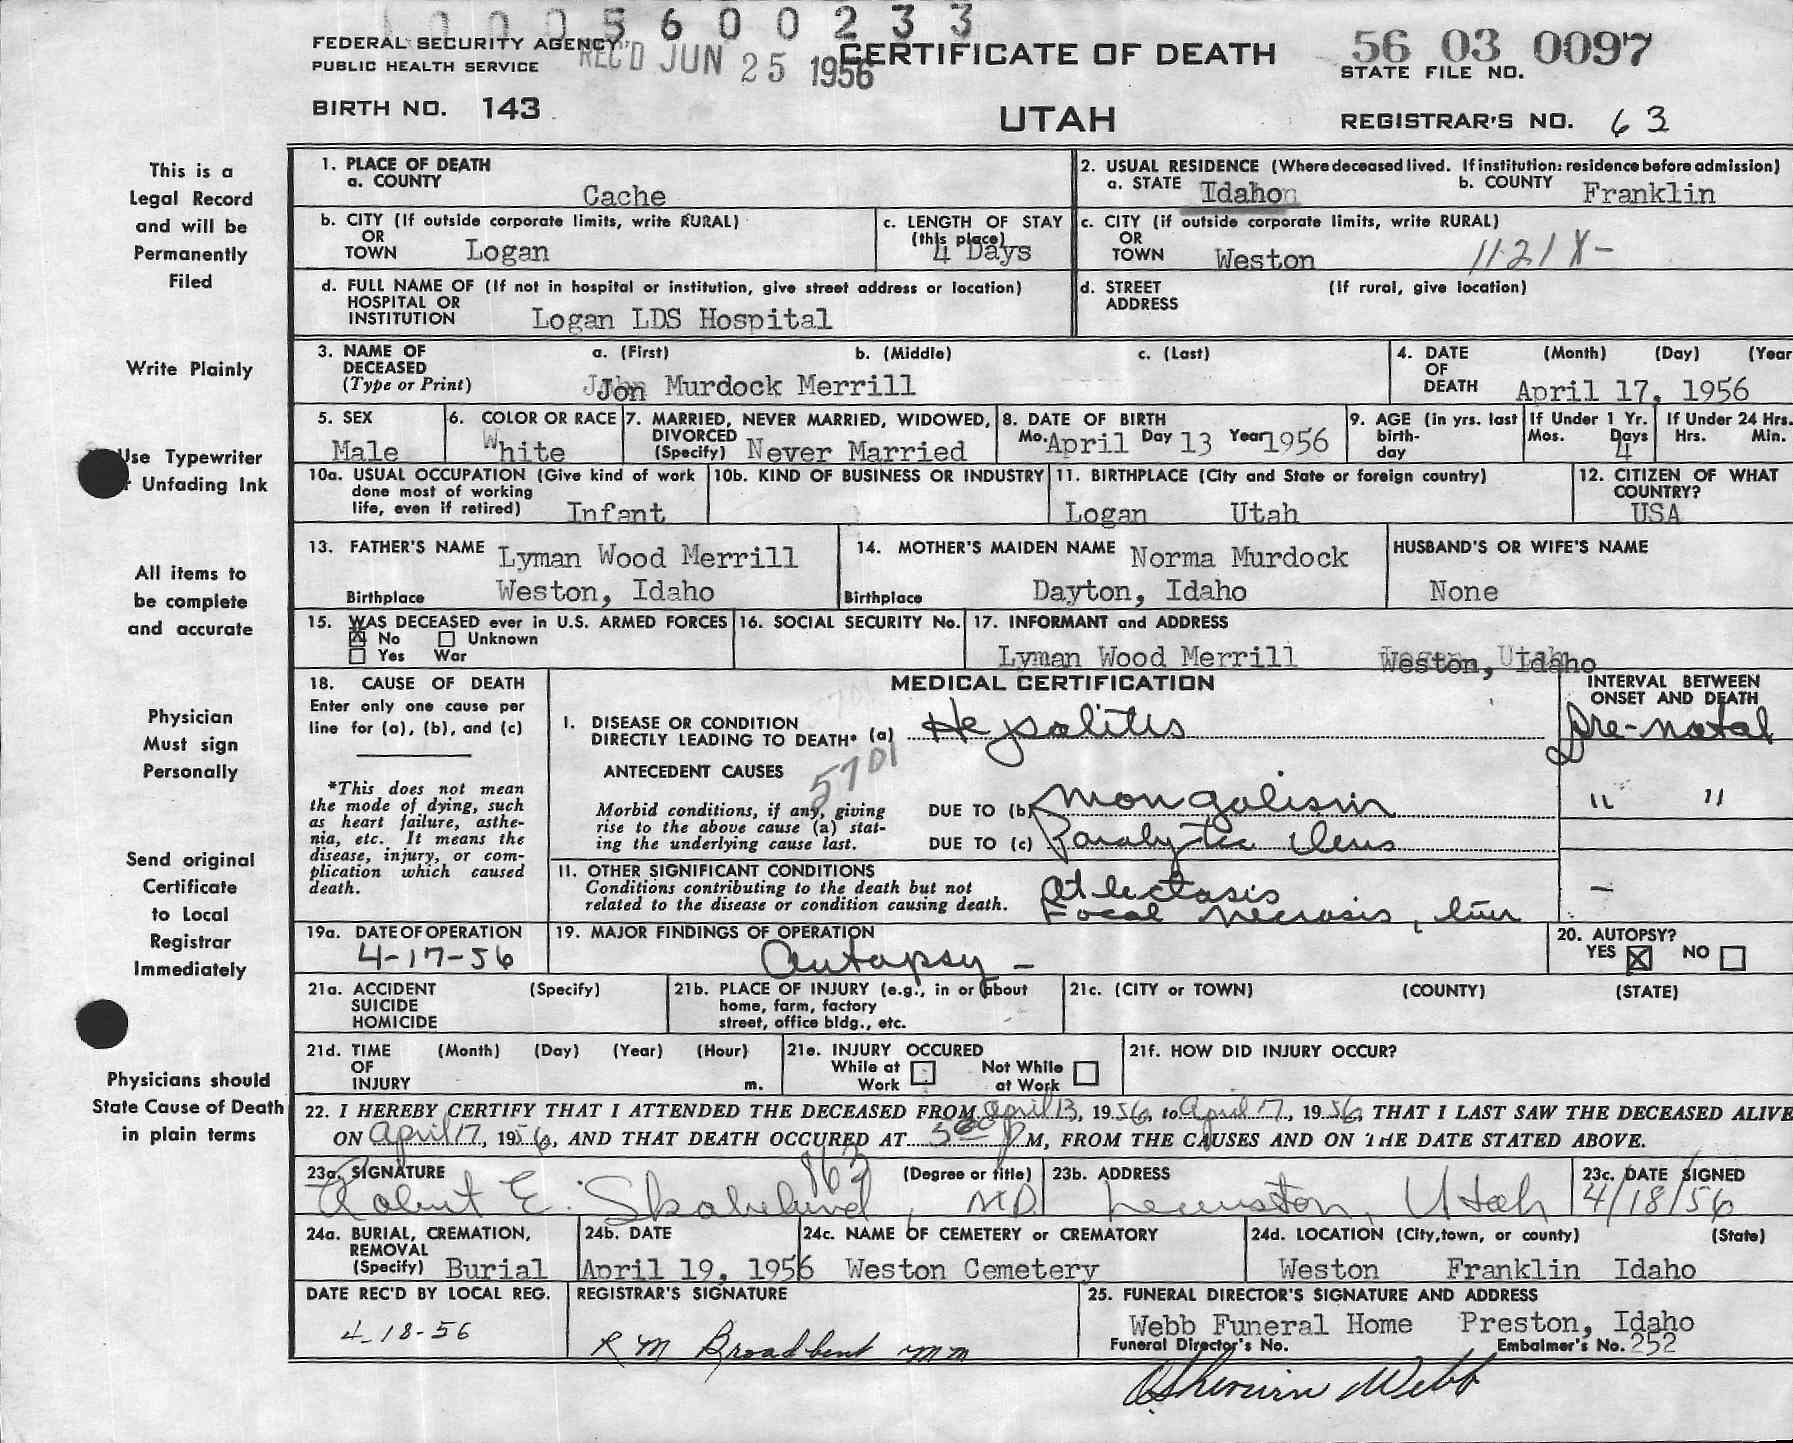 1 0 0 0 5 6 0 0 2 3 3
FEDERAL SECURITY AGENCY
PUBLIC HEALTH SERVICE
REC'D JUN 25 1956
CERTIFICATE OF DEATH
56 03 0097
STATE FILE NO.
BIRTH NO. 143
UTAH
REGISTRAR'S NO. 63
This is a
Legal Record
and will be
Permanently
Filed
Write Plainly
Use Typewriter
Unfading Ink
All items to
be complete
and accurate
Physician
Must sign
Personally
Send original
Certificate
to Local
Registrar
Immediately
Physicians should
State Cause of Death
in plain terms
1. PLACE OF DEATH
a. COUNTY
Cache
2. USUAL RESIDENCE (Where deceased lived. If institution: residence before admission)
a. STATE Idaho b. COUNTY Franklin
b. CITY (If outside corporate limits, write RURAL)
OR
TOWN Logan
c. LENGTH OF STAY
(this place)
4 Days
c. CITY (if outside corporate limits, write RURAL)
OR
TOWN Weston 1121X-
d. FULL NAME OF (If not in hospital or institution, give street address or location)
HOSPITAL OR
INSTITUTION Logan LDS Hospital
d. STREET (If rural, give location)
ADDRESS
3. NAME OF a. (First) b. (Middle) c. (Last)
DECEASED
(Type or Print) Jon Murdock Merrill
4. DATE (Month) (Day) (Year
OF
DEATH April 17, 1956
5. SEX
Male
6. COLOR OR RACE
White
7. MARRIED, NEVER MARRIED, WIDOWED,
DIVORCED
(Specify) Never Married
8. DATE OF BIRTH
Mo. April Day 13 Year 1956
9. AGE (in yrs. last
birth-
day
If Under 1 Yr.
Mos. Days
4
If Under 24 Hrs.
Hrs. Min.
10a. USUAL OCCUPATION (Give kind of work
done most of working
life, even if retired) Infant
10b. KIND OF BUSINESS OR INDUSTRY
11. BIRTHPLACE (City and State or foreign country)
Logan Utah
12. CITIZEN OF WHAT
COUNTRY?
USA
13. FATHER'S NAME Lyman Wood Merrill
Birthplace Weston, Idaho
14. MOTHER'S MAIDEN NAME Norma Murdock
Birthplace Dayton, Idaho
HUSBAND'S OR WIFE'S NAME
None
15. WAS DECEASED ever in U.S. ARMED FORCES
No Unknown
Yes War
16. SOCIAL SECURITY No.
17. INFORMANT and ADDRESS
Lyman Wood Merrill Weston, Idaho
18. CAUSE OF DEATH
Enter only one cause per
line for (a), (b), and (c)
*This does not mean
the mode of dying, such
as heart failure, asthe-
nia, etc. It means the
disease, injury, or com-
plication which caused
death.
MEDICAL CERTIFICATION
INTERVAL BETWEEN
ONSET AND DEATH
I. DISEASE OR CONDITION
DIRECTLY LEADING TO DEATH* (a) Hepatitis Pre-natal
ANTECEDENT CAUSES
5701
Morbid conditions, if any, giving
rise to the above cause (a) stat-
ing the underlying cause last.
DUE TO (b) Mongolism " "
DUE TO (c) Paralytic Ileus
11. OTHER SIGNIFICANT CONDITIONS
Conditions contributing to the death but not
related to the disease or condition causing death.
Atlectasis –
Focal necrosis, liver
19a. DATE OF OPERATION
4-17-56
19. MAJOR FINDINGS OF OPERATION
Autopsy –
20. AUTOPSY?
YES NO
21a. ACCIDENT (Specify)
SUICIDE
HOMICIDE
21b. PLACE OF INJURY (e.g., in or about
home, farm, factory
street, office bldg., etc.
21c. (CITY or TOWN) (COUNTY) (STATE)
21d. TIME (Month) (Day) (Year) (Hour)
OF
INJURY m.
21e. INJURY OCCURED
While at Not While
Work at Work
21f. HOW DID INJURY OCCUR?
22. I HEREBY CERTIFY THAT I ATTENDED THE DECEASED FROM April 13, 1956, to April 17, 1956, THAT I LAST SAW THE DECEASED ALIVE
ON April 17, 1956, AND THAT DEATH OCCURED AT 5:00 P M, FROM THE CAUSES AND ON THE DATE STATED ABOVE.
23a. SIGNATURE (Degree or title)
863
Robert E. Skabelund, M.D.
23b. ADDRESS
Lewiston, Utah
23c. DATE SIGNED
4/18/56
24a. BURIAL, CREMATION,
REMOVAL
(Specify) Burial
24b. DATE
April 19, 1956
24c. NAME OF CEMETERY or CREMATORY
Weston Cemetery
24d. LOCATION (City, town, or county) (State)
Weston Franklin Idaho
DATE REC'D BY LOCAL REG.
4-18-56
REGISTRAR'S SIGNATURE
R M Broadbent mm
25. FUNERAL DIRECTOR'S SIGNATURE AND ADDRESS
Webb Funeral Home Preston, Idaho
Funeral Director's No. Embalmer's No. 252
Webb